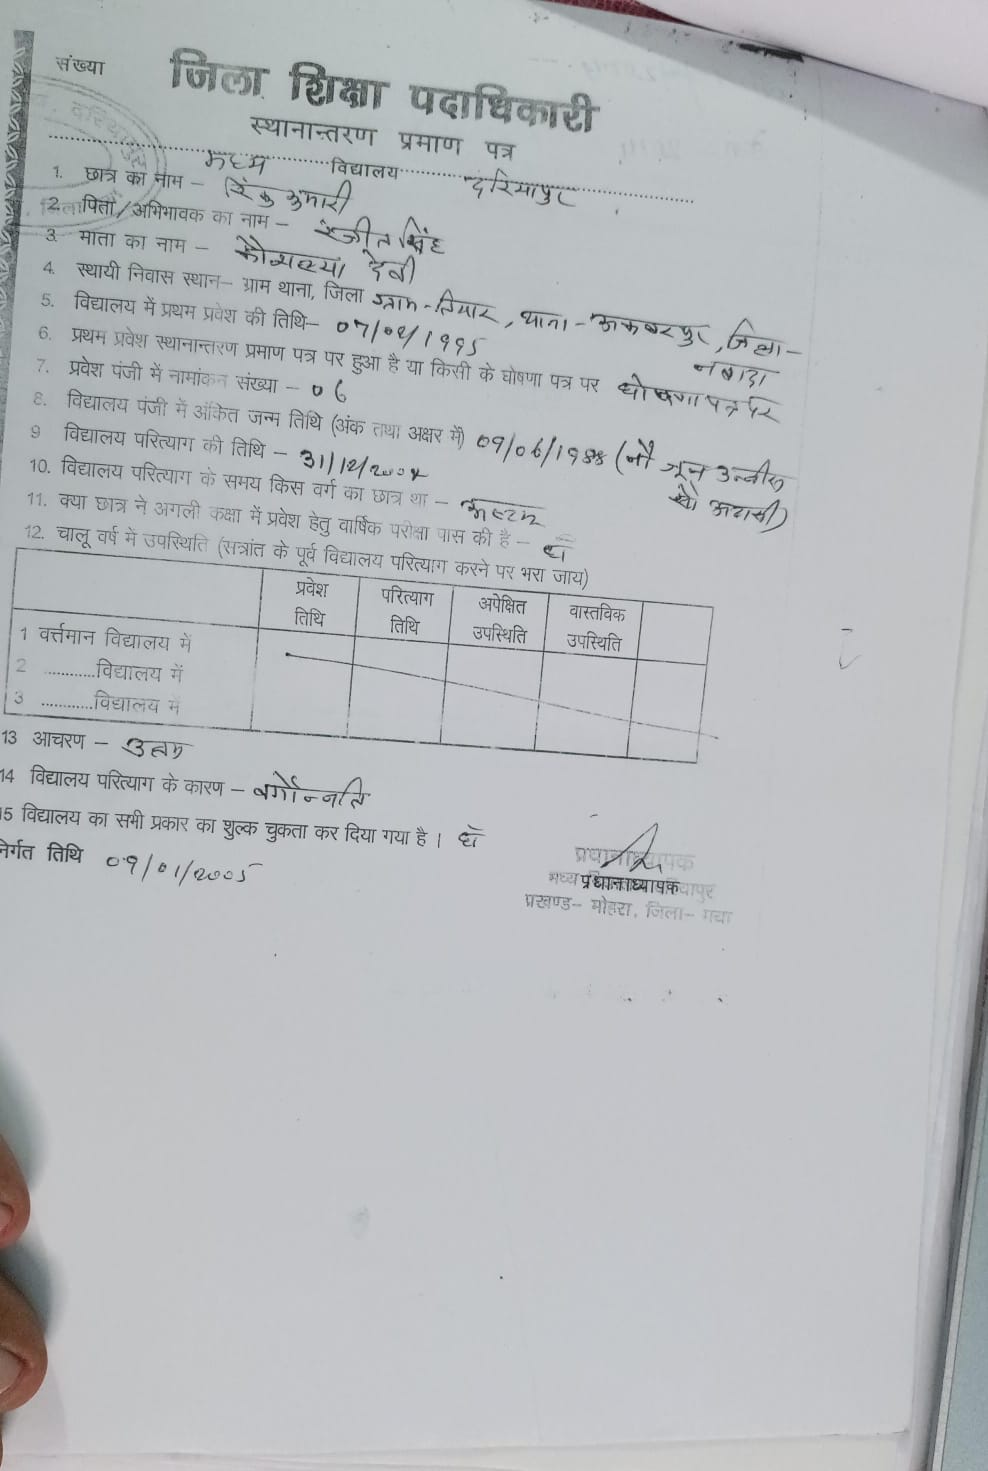 संख्या
जिला शिक्षा पदाधिकारी
स्थानान्तरण प्रमाण पत्र
मध्य विद्यालय दरियापुर
1. छात्र का नाम - रिंकु कुमारी
2. पिता/अभिभावक का नाम - रंजीत सिंह
3. माता का नाम - कौशल्या देवी
4. स्थायी निवास स्थान- ग्राम थाना, जिला ग्राम - , थाना - अकबरपुर, जिला - नवादा
5. विद्यालय में प्रथम प्रवेश की तिथि- 07/02/1995
6. प्रथम प्रवेश स्थानान्तरण प्रमाण पत्र पर हुआ है या किसी के घोषणा पत्र पर घोषणा पत्र पर
7. प्रवेश पंजी में नामांकन संख्या - 06
8. विद्यालय पंजी में अंकित जन्म तिथि (अंक तथा अक्षर में) 09/06/1988 (नौ जून उन्नीस सौ अठासी)
9 विद्यालय परित्याग की तिथि - 31/12/2004
10. विद्यालय परित्याग के समय किस वर्ग का छात्र था - अष्टम
11. क्या छात्र ने अगली कक्षा में प्रवेश हेतु वार्षिक परीक्षा पास की है - हाँ
12. चालू वर्ष में उपस्थिति (सत्रांत के पूर्व विद्यालय परित्याग करने पर भरा जाय)
प्रवेश तिथि परित्याग तिथि अपेक्षित उपस्थिति वास्तविक उपस्थिति
1 वर्त्तमान विद्यालय में
2 ............विद्यालय में
3 ............विद्यालय में
13 आचरण - उत्तम
14 विद्यालय परित्याग के कारण - वर्गोन्नति
15 विद्यालय का सभी प्रकार का शुल्क चुकता कर दिया गया है। हाँ
निर्गत तिथि 09/01/2005
प्रधानाध्यापक
मध्य प्रधानाध्यापक
प्रखण्ड- मोहरा, जिला- गया